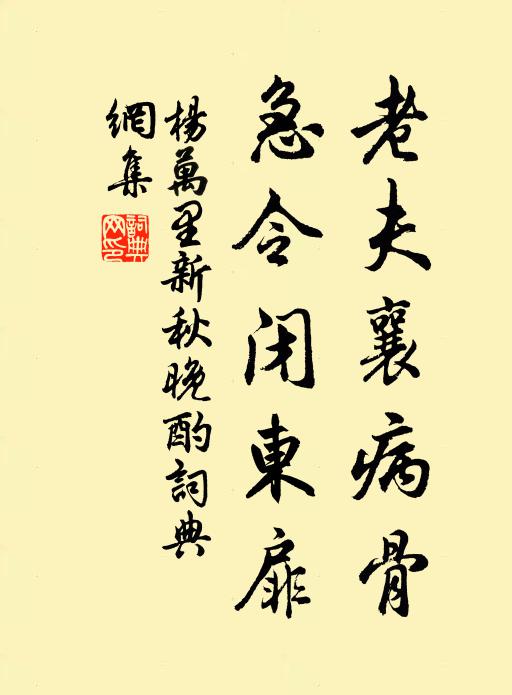 老夫襄病骨
急令闭東扉
楊萬里新秋晚酌詞典
網集
詞典网印